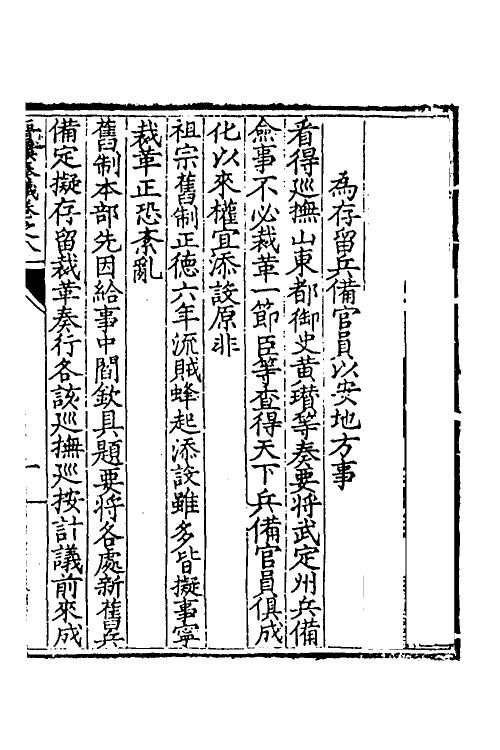 為存留兵備官員以安地方事
看得廵撫山東都御史黄瓚等奏要將武定州兵備
僉事不必裁革一節臣等查得天下兵備官員俱成
化以來權宜添設原非
祖宗舊制正德六年流賊蜂起添設雖多皆擬事寧
裁革正恐紊亂
舊制本部先因給事中閻欽具題要將各處新舊兵
備定擬存留裁革奏行各該廵撫廵按計議前來成
卷之八